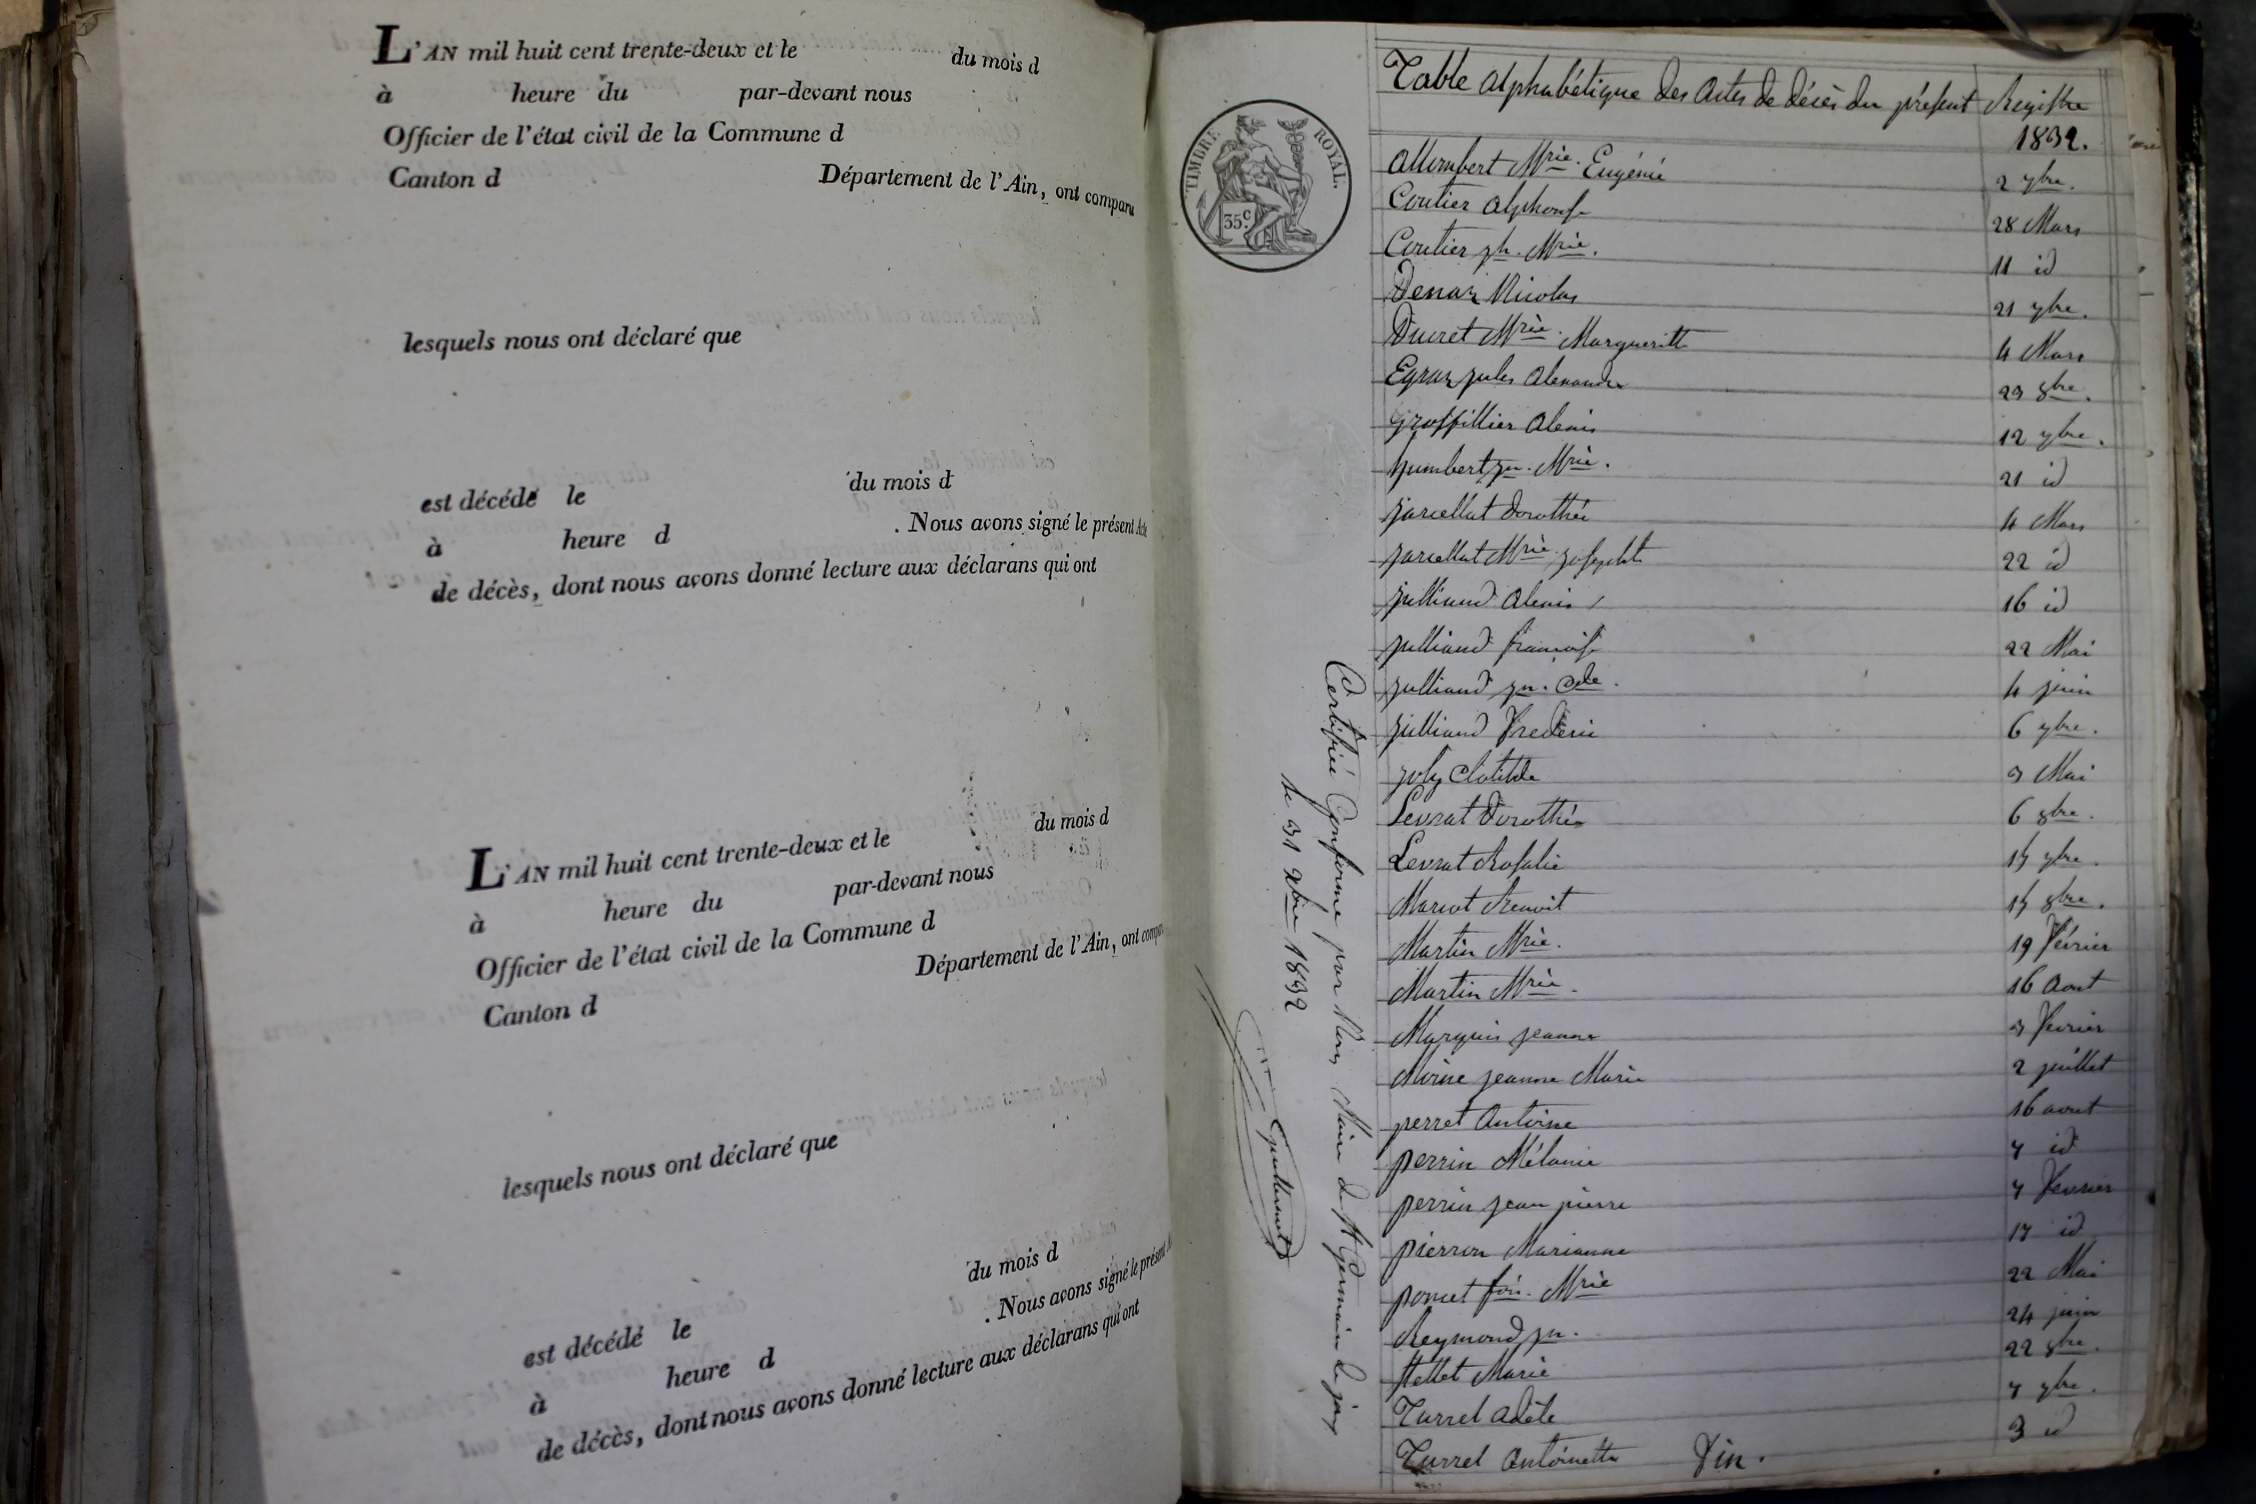 L'AN mil huit cent trente-deux et le du mois d
à heure du par-devant nous
Officier de l'état civil de la Commune d
Canton d Département de l'Ain, ont comparu
lesquels nous ont déclaré que
est décédé le du mois d
à heure d . Nous avons signé le présent Acte
de décès, dont nous avons donné lecture aux déclarans qui ont
L'AN mil huit cent trente-deux et le du mois d
à heure du par-devant nous
Officier de l'état civil de la Commune d
Canton d Département de l'Ain, ont compar
lesquels nous ont déclaré que
est décédé le du mois d
à heure d . Nous avons signé le présent
de décès, dont nous avons donné lecture aux déclarans qui ont
TIMBRE ROYAL.
35 c.
Table alphabétique des actes de décès du présent Registre
1832.
Allembert Mrie. Eugénie 2 7bre.
Coutier alphonse 28 Mars
Coutier ph. Mrie. 11 id
Nicolas 21 7bre.
Ducret Mrie. Margueritte 4 Mars
Egraz jules alexandre 23 8bre.
Grosfillier alexis 12 7bre.
humbert jn. Mrie. 21 id
jarcellat dorothée 4 Mars
jarcellat Mrie. josephte 22 id
julliand alexis 16 id
julliand françoise 22 Mai
julliand jn. Cde. 4 juin
julliand frederic 6 7bre.
joly Clotilde 3 Mai
Levrat dorothée 6 8bre.
Levrat Rosalie 14 7bre.
Benoit 14 8bre.
Martin Mrie. 19 février
Martin Mrie. 16 aout
Marquis jeanne 3 fevrier
Moine jeanne Marie 2 juillet
perret antoine 16 aout
perrin Mélanie 7 id
perrin jean pierre 7 fevrier
pierron Marianne 17 id
poncet fois. Mrie 22 Mai
Reymond jn. 24 juin
Marie 22 8bre.
Turrel adèle 7 7bre.
Turrel antoinette fin. 3 id
Certifié Conforme par Nous Maire de St Germain de joux
le 31 Xbre 1832